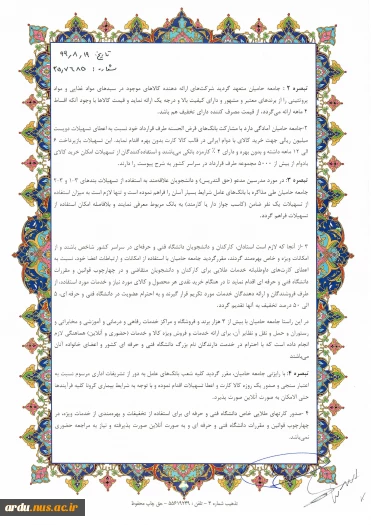 تاریخ: ۹۹,۸,۱۹
شماره: ۲۵,۷۶۸۵
تبصره ۲ : جامعه حامیان متعهد گردید شرکت‌های ارائه دهنده کالاهای موجود در سبدهای مواد غذایی و مواد
پروتئینی را از برندهای معتبر و مشهور و دارای کیفیت بالا و درجه یک ارائه نماید و قیمت کالاها با وجود آنکه اقساط
۴ ماهه ارائه می‌گردد، از قیمت مصرف کننده دارای تخفیف هم باشد.
۲-جامعه حامیان آمادگی دارد با مشارکت بانک‌های قرض الحسنه طرف قرارداد خود نسبت به اعطای تسهیلات دویست
میلیون ریالی جهت خرید کالای با دوام ایرانی در قالب کالا کارت بدون بهره اقدام نماید. این تسهیلات بازپرداخت ۶
الی ۱۲ ماهه داشته و بدون بهره و دارای ۴ ٪ کارمزد بانکی می‌باشند و استفاده‌کنندگان از تسهیلات امکان خرید کالای
بادوام از بیش از ۵۰۰۰ مجموعه طرف قرارداد در سراسر کشور به شرح پیوست را دارند.
تبصره ۳: در مورد مدرسین مدعو (حق التدریس) و دانشجویان علاقه‌مند به استفاده از تسهیلات بندهای ۳-۱ و ۳-۲
جامعه حامیان طی مذاکره با بانک‌های عامل شرایط بسیار آسان را فراهم نموده است و تنها لازم است به میزان استفاده
از تسهیلات یک نفر ضامن (کاسب جواز دار یا کارمند) به بانک مربوط معرفی نمایند و بلافاصله امکان استفاده از
تسهیلات فراهم گردد.
۳-از آنجا که لازم است استادان، کارکنان و دانشجویان دانشگاه فنی و حرفه‌ای در سراسر کشور شاخص باشند و از
امکانات ویژه و خاص بهره‌مند گردند، مقرر گردید جامعه حامیان با استفاده از امکانات و ارتباطات اعضا خود، نسبت به
اعطای کارت‌های داوطلبانه خدمات طلایی برای کارکنان و دانشجویان متقاضی و در چهارچوب قوانین و مقررات
دانشگاه فنی و حرفه ای اقدام نماید تا در هنگام خرید نقدی هر محصول و کالای مورد نیاز و خدمات مورد استفاده، از
طرف فروشندگان و ارائه دهندگان خدمات مورد تکریم قرار گیرند و به احترام عضویت در دانشگاه فنی و حرفه ای، ۵
الی ۵۰ درصد تخفیف به آنها تقدیم گردد.
در این راستا جامعه حامیان با بیش از ۴ هزار برند و فروشگاه و مراکز خدمات رفاهی و درمانی و آموزشی و مخابراتی و
رستوران و حمل و نقل و نظایر آن، برای ارائه خدمات و فروش ویژه کالا و خدمات (حضوری و آنلاین) هماهنگی لازم
انجام داده است که با احترام در خدمت دارندگان نام بزرگ دانشگاه فنی و حرفه ای کشور و اعضای خانواده آنان
می‌باشند.
تبصره ۴: با رایزنی جامعه حامیان، مقرر گردید، کلیه شعب بانک‌های عامل به دور از تشریفات اداری مرسوم نسبت به
اعتبار سنجی و صدور یک روزه کالا کارت و اعطا تسهیلات اقدام نموده و با توجه به شرایط بیماری کرونا کلیه فرآیندها
حتی الامکان به صورت آنلاین صورت پذیرد.
۴- صدور کارتهای طلایی خاص دانشگاه فنی و حرفه ای برای استفاده از تخفیفات و بهره‌مندی از خدمات ویژه، در
چهارچوب قوانین و مقررات دانشگاه فنی و حرفه ای و به صورت آنلاین صورت پذیرفته و نیاز به مراجعه حضوری
نمی‌باشد.
تذهیب شماره ۳ - تلفن : ۵۵۶۱۹۲۳۹ - حق چاپ محفوظ
ardu.nus.ac.ir